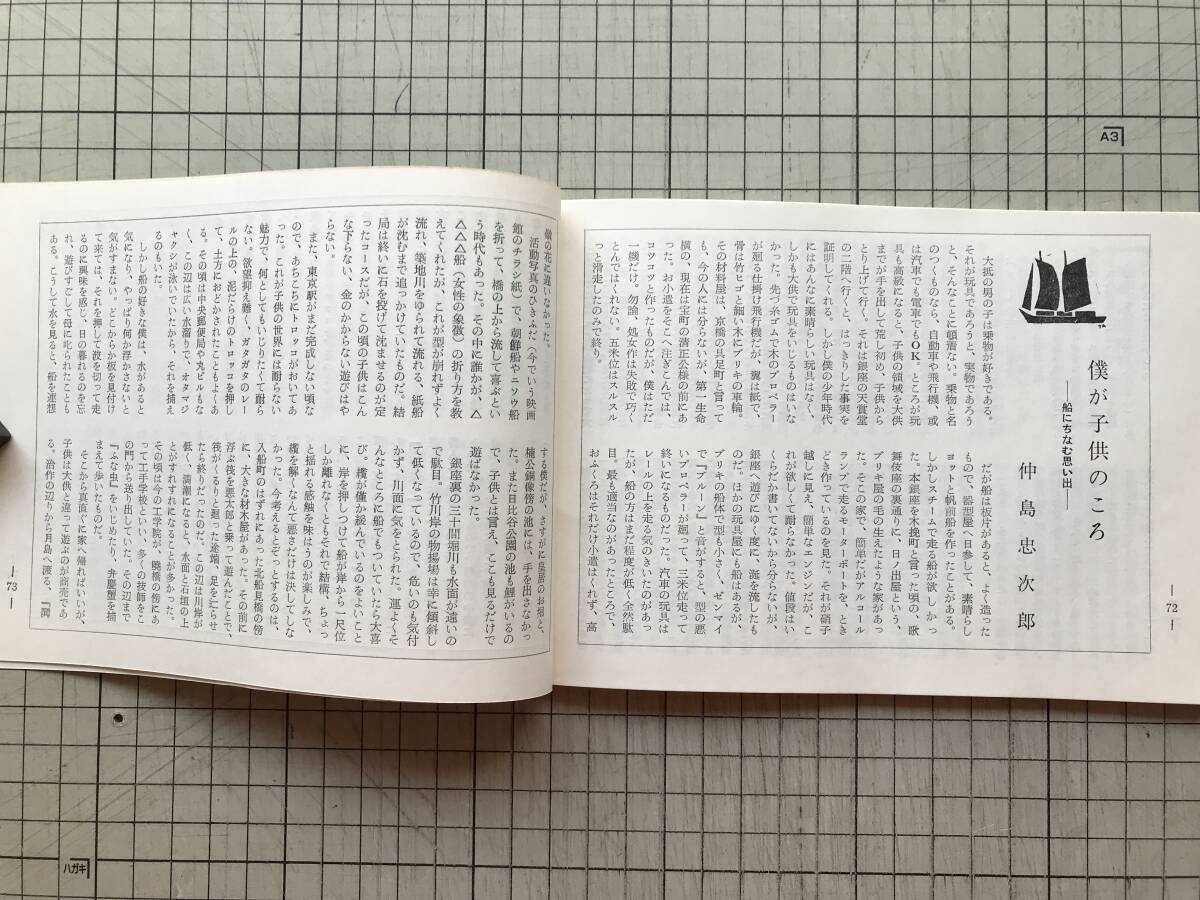 A3
ハガキ
僕が子供のころ
――船にちなむ思い出――
仲島忠次郎
大抵の男の子は乗物が好きである。
それが玩具であろうと、実物であろう
と、そんなことに頓着ない。乗物と名
のつくものなら、自動車や飛行機、或
は汽車でも電車でもOK。ところが玩
具も高級になると、子供の領域を大供
までが手を出して荒し初め、子供から
とり上げて行く。それは銀座の天賞堂
の二階へ行くと、はっきりした事実を
証明してくれる。しかし僕の少年時代
にはあんなに素晴らしい玩具はなく、
しかも大供で玩具をいじるものはいな
かった。先づ糸ゴムで木のプロペラー
が廻る仕掛け飛行機だが、翼は紙で、
骨は竹ヒゴと細い木にブリキの車輪。
その材料屋は、京橋の具足町と言って
も、今の人には分らないが、第一生命
横の、現在は宝町の清正公様の前にあ
った。お小遣をそこへ注ぎこんでは、
コツコツと作ったものだが、僕はただ
一機だけ。勿論、処女作は失敗で巧く
とんではくれない。五米位はスルスル
っと滑走したのみで終り。
だが船は板片があると、よく造った
もので、器型屋へ日参して、素晴らし
ヨットと帆前船を作ったことがある。
しかしスチームで走る船が欲しかっ
た。本銀座を木挽町と言った頃の、歌
舞伎座の裏通りに、日ノ出屋という、
ブリキ屋の毛の生えたような家があっ
た。そこの家で、簡単だがアルコール
ランプで走るモーターボートを、とき
どき作っているのを見た。それが硝子
越しに見え、簡単なエンジンだが、こ
れが欲しくて耐らなかった。値段はい
くらだか書いてないから分らないが、
銀座へ遊びにゆく度に、涎を流したも
のだ。ほかの玩具屋にも船はあるが、
ブリキの船体で型も小さく、ゼンマイ
で『ブルーン』と音がすると、型の悪
いプロペラーが廻って、三米位走って
終いになるものだった。汽車の玩具は
レールの上を走る気のきいたのがあっ
たが、船の方はまだ程度が低く全然駄
目。最も適当なのがあったところで、
おふくろはそれだけ小遣はくれず、高
―72―
嶺の花に違いなかった。
活動写真のひきふだ(今でいう映画
館のチラシ紙)で、朝鮮船やニソウ船
を折って、橋の上から流して喜ぶとい
う時代もあった。その中に誰かが、△
△△△船(女性の象徴)の折り方を教
えてくれたが、これが型が崩れずよく
流れ、築地川をゆられて流れる、紙船
が沈むまで追っかけていたものだ。結
局は終いに石を投げて沈ませるのが定
ったコースだが、この頃の子供はこん
な下らない、金のかからない遊びはや
らない。
また、東京駅がまだ完成しない頃な
ので、あちこちにトロッコがおいてあ
った。これが子供の世界には耐らない
魅力で、何としてもいじりたくて耐ら
ない。欲望抑え難く、ガタガタのレー
ルの上の、泥だらけのトロッコを押し
て、土方におどかされたことも上々あ
る。その頃は中央郵便局や丸ビルもな
く、この辺は広い水溜りで、オタマジ
ャクシが泳いでいたから、それを捕え
るのもいた。
しかし船の好きな僕は、水があると
気になり、やっぱり何か浮かさないと
気がすまない。どこからか板を見付け
て来ては、それを押して波を切って走
るのに興味を感じ、日の暮れるのを忘
れ、遊びすごして母に叱られたことも
ある。こうして水を見ると、船を連想
する僕だが、さすがに皇居のお堀と、
楠公銅像傍の池には、手を出さなかっ
た。また日比谷公園の池も鯉がいるの
で、子供とは言え、ここも見るだけで
遊ばなかった。
銀座裏の三十間堀川も水面が遠いの
で駄目。竹川岸の物揚場は幸に傾斜し
て低くなっているので、危いのも気付
かず、川面に気をとられた。運よくそ
んなところに船でもついていたら大喜
び。纜が僅か緩んでいるのをよいこと
に、岸を押しつけて船が岸から一尺位
しか離れなくともそれで結構、ちょっ
と揺れる感触を味はうのが楽しみで、
纜を解くなんて悪さだけは決してしな
かった。今考えるとぞっとするのは、
入船町のはずれにあった北船見橋の傍
に、大きな材木屋があった。その前に
浮ぶ筏を悪太郎と乗って遊んだことで、
筏がぐるりと廻った途端、足をにらせ
たら終りだったのだ。この辺は川岸が
低く、満潮になると、水面と石垣の上
とがすれすれになることが多かった。
その頃は今の工学院が、鷗橋の傍にあ
って工手学校といい、多くの技師をこ
の門から送り出していた。その辺まで
『ふな虫』をいじめたり、弁慶蟹を捕
まえて歩いたものだ。
そこから真直ぐに家へ帰ればいいが、
子供は大供と違って遊ぶのが商売であ
る。治作の辺りから月島へ渡る、『渡
―73―